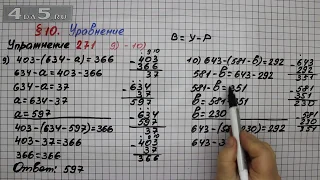 4apa5.ru
§10. Уравнение
Упражнение 271 9)-10)
В = У-Р
9) 403-(634-a)=366
634-a=403-366
634-a=37
a=634-37
a=597
403-(634-597)=366
403-37=366
366=366
Ответ: 597
403
366
37
634
37
597
634
597
37
403
37
366
10) 643-(581-b)=292
581-b=643-292
581-b=351
b=581-351
b=230
643-
643-3
643
292
351
581
351
230